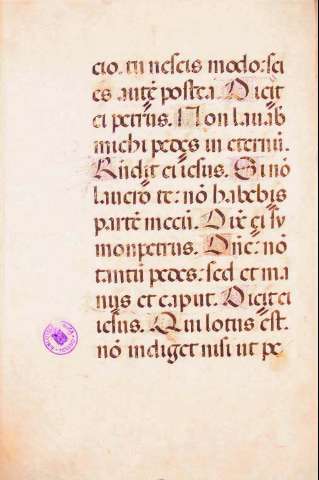 cio. tu nescis modo: sci
es autē postea. Dicit
ei petrus. Non lavab
michi pedes in eternū.
Rn̄dit ei iesus. Si nō
lavero te: nō habebis
partē mecū. Dix̄ ei sy
mon petrus. Dn̄e: nō
tantū pedes: sed et ma
nus et caput. Dicit ei
iesus. Qui lotus est.
nō indiget nisi ut pe